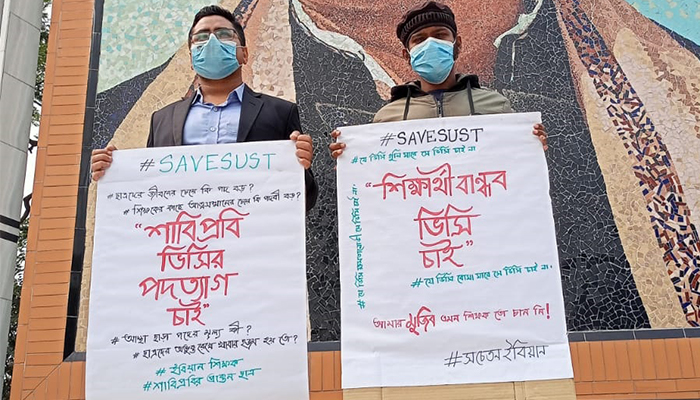 #SAVESUST
#ছাত্রদের জীবনের চেয়ে কি পদ বড়?
#শিক্ষকের কাছে আত্মসম্মানের চেয়ে কি পদবী বড়?
"শাবিপ্রবি
ভিসির
পদত্যাগ
চাই"
#আস্থা ছাড়া পদের মূল্য কী?
#ছাত্রদের অভুক্ত রেখে খাবার হজম হয় তো?
#ইবিয়ান শিক্ষক
#শাবিপ্রবির প্রাক্তন ছাত্র
#SAVESUST
#যে ভিসি গুলি মারে সে ভিসি চাই না
"শিক্ষার্থী বান্ধব
ভিসি
চাই"
#যে ভিসি বোমা মারে সে ভিসি চাই না.
আমার মুজিব এমন শিক্ষক তো চান নি!
#সচেতন ইবিয়ান